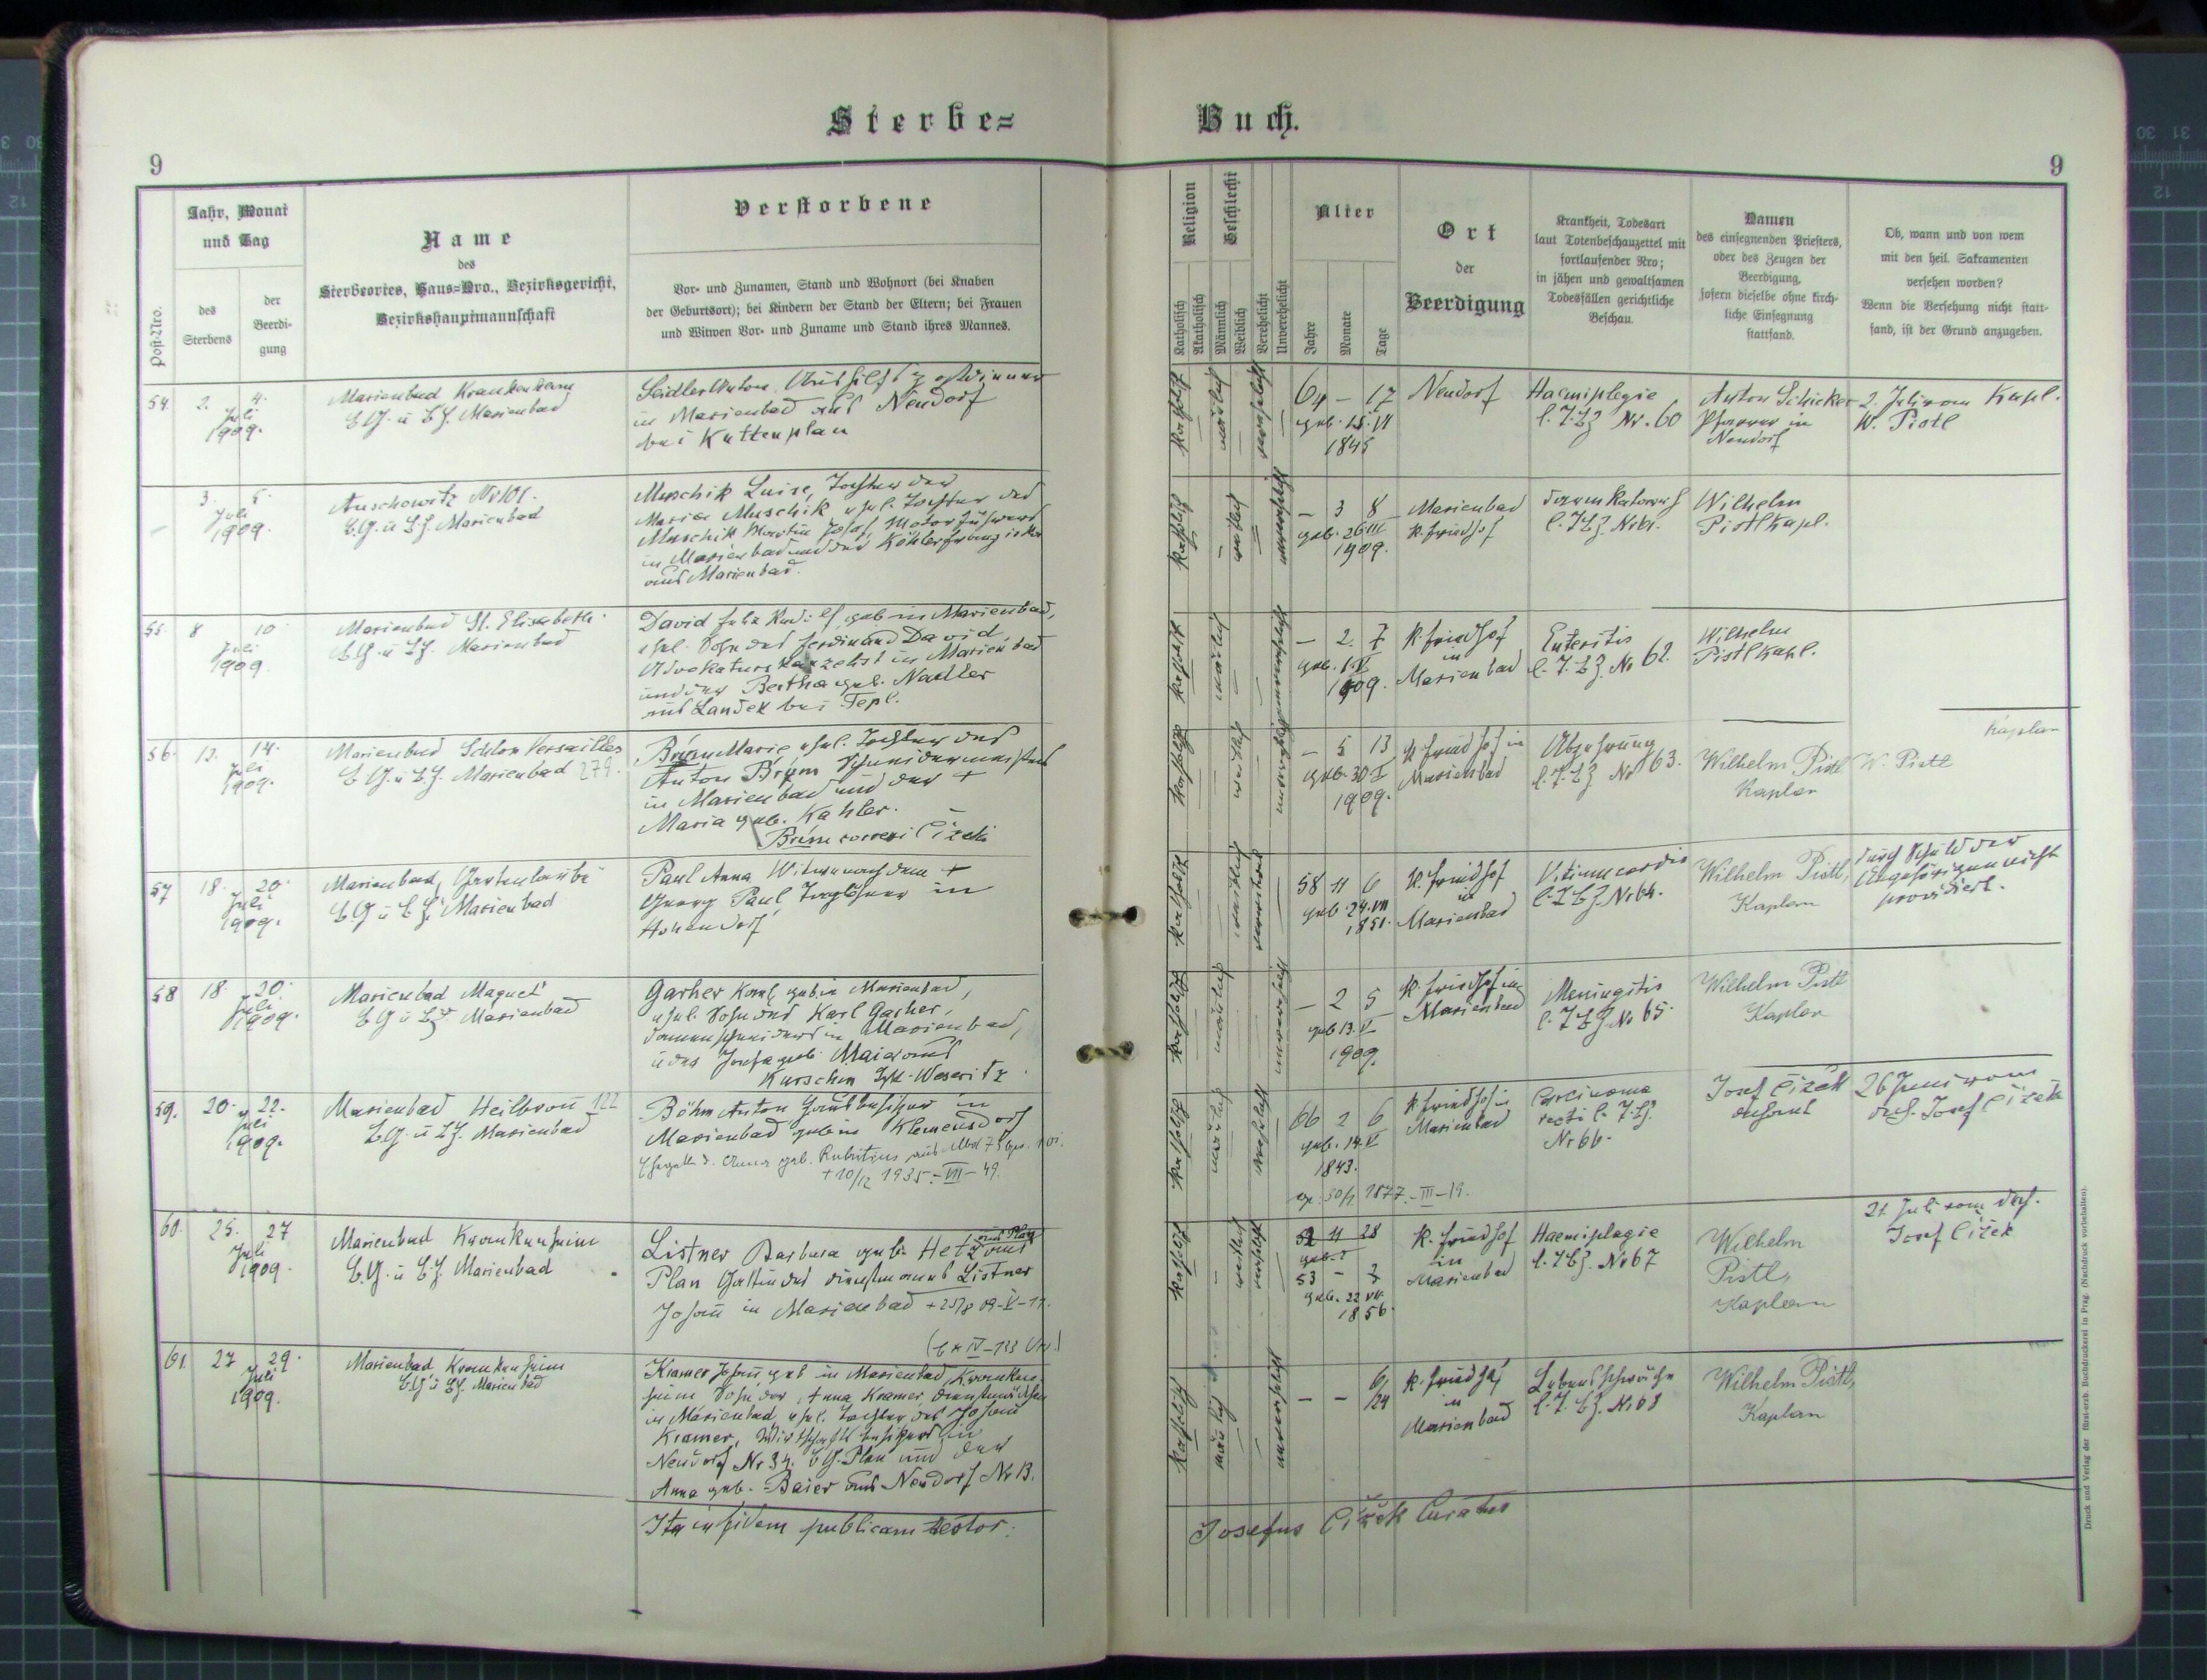 Sterbe= Buch.
9
9
Post-Nro.
Jahr, Monat
und Tag
des
Sterbens
der
Beerdi-
gung
Name
des
Sterbeortes, Haus=Nro., Bezirksgericht,
Bezirkshauptmannschaft
Verstorbene
Vor- und Zunamen, Stand und Wohnort (bei Knaben
der Geburtsort); bei Kindern der Stand der Eltern; bei Frauen
und Witwen Vor- und Zuname und Stand ihres Mannes.
Religion
Katholisch
Akatholisch
Geschlecht
Männlich
Weiblich
Verehelicht
Unverehelicht
Alter
Jahre
Monate
Tage
Ort
der
Beerdigung
Krankheit, Todesart
laut Totenbeschauzettel mit
fortlaufender Nro;
in jähen und gewaltsamen
Todesfällen gerichtliche
Beschau.
Namen
des einsegnenden Priesters,
oder des Zeugen der
Beerdigung,
sofern dieselbe ohne kirch-
liche Einsegnung
stattfand.
Ob, wann und von wem
mit den heil. Sakramenten
versehen worden?
Wenn die Versehung nicht statt-
fand, ist der Grund anzugeben.
54. 2. 4.
Juli
1909.
Marienbad Krankenheim
B.G. u B.H. Marienbad
Seidler Anton
in Marienbad aus Neudorf
bei Kuttenplan
katholisch
männlich
verehelicht
64 — 17
geb. 15.VI
1845
Neudorf
Haemiplegie
l. T.B.Z Nr. 60
Anton Schicker
Pfarrer in
Neudorf
2. Juli vom Kapl.
W. Pistl
3. 5.
Juli
1909.
Auschowitz No 101.
B.G. u B.H. Marienbad
Muschik Luise, Tochter der
Maria Muschik ehel. Tochter des
Muschik Martin Josef, Motorführers
in Marienbad und der Köhler
aus Marienbad.
katholisch
weiblich
unverehelicht
— 3 8
geb. 26 III
1909.
Marienbad
k. Friedhof
Darmkatarrh
l. T.B.Z. No 61.
Wilhelm
Pistl Kapl.
55. 8 10
Juli
1909
Marienbad St. Elisabeth
B.G. u B.H. Marienbad
David Rudolf, geb in Marienbad,
ehel. Sohn des Ferdinand David,
Advokaturskanzelist in Marienbad
und der Bertha geb. Nadler
aus Landek bei Tepl.
katholisch
männlich
unverehelicht
— 2. 7
geb. 1.V
1909.
k. Friedhof
in
Marienbad
Enteritis
l. T.B.Z. No 62.
Wilhelm
Pistl Kapl.
56. 13. 14.
Juli
1909.
Marienbad Schloss Versailles
B.G. u B.H. Marienbad 279.
Brým Marie, ehel. Tochter des
Anton Brým Schneidermeisters
in Marienbad und der +
Maria geb. Kahler.
Brým correxi Čížek
katholisch
weiblich
unverehelicht
— 5 13
geb. 30 I
1909.
k. Friedhof in
Marienbad
Abzehrung
l. T.B.Z No 63.
Wilhelm Pistl
Kaplan
W. Pistl
Kaplan
57 18. 20.
Juli
1909.
Marienbad, Gartenlaube
B.G u B.H. Marienbad
Paul Anna Witwe nach dem +
Georg Paul Taglöhner in
Hohendorf
katholisch
weiblich
58 11 6
geb. 24.VII
1851.
k. Friedhof
in
Marienbad
Vitium cordis
l. T.B.Z. No 64.
Wilhelm Pistl,
Kaplan
durch Schuld der
Angehörigen nicht
providiert.
58 18. 20.
Juli
1909.
Marienbad Maguet
B.G u B.H Marienbad
Garher Karl, geb in Marienbad,
ehel. Sohn des Karl Garher,
Damenschneiders in Marienbad,
u der Josefa geb. Maier aus
Kurschin Bzk. Weseritz.
katholisch
männlich
unverehelicht
— 2 5
geb. 13. V
1909.
k. Friedhof in
Marienbad
Meningitis
l. T.B.Z No 65.
Wilhelm Pistl
Kaplan
59. 20. 22.
Juli
1909.
Marienbad Heilbron 122
B.G. u B.H. Marienbad
Böhm Anton Hausbesitzer in
Marienbad geb in Klemensdorf
Ehegatte d. Anna geb. Rubritius aus Mbd 75
+ 10/12 1935.-VII-49.
katholisch
männlich
verehelicht
66 2 6
geb. 14. V
1843.
30/1 1877.-III-19.
k. Friedhof in
Marienbad
Carcinoma
recti l. T.B.Z.
No 66.
Josef Čížek
26 Juni vom
Josef Čížek
60. 25. 27
Juli
1909.
Marienbad Krankenheim
B.G. u B.H. Marienbad
Listner Barbara geb. Hetz aus
Plan Gattin des Dienstmanns Listner
Johann in Marienbad + 25/7 09-V-11.
katholisch
weiblich
verehelicht
52 11 28
53 — 3
geb. 22 VII.
1856.
k. Friedhof
in
Marienbad
Haemiplegie
l. T.B.Z. No 67
Wilhelm
Pistl,
Kaplan
21. Juli vom
Josef Čížek
61. 27 29.
Juli
1909.
Marienbad Krankenheim
B.G u B.H. Marienbad
Kramer Johann geb in Marienbad, Kranken-
heim Sohn der Anna Kramer, Dienstmädchen
in Marienbad, ehel. Tochter des Johann
Kramer, Wirtschaftsbesitzers in
Neudorf Nr 34. B.G. Plan und der
Anna geb. Baier aus Neudorf Nr 13.
katholisch
männlich
unverehelicht
— — 6/24
k. Friedhof
in
Marienbad
Lebensschwäche
l. T. B.Z. No 68
Wilhelm Pistl,
Kaplan
Ita in fidem publicam testor:
Josefus Čížek Curatus
Druck und Verlag der fürst-erzb. Buchdruckerei in Prag. (Nachdruck vorbehalten).